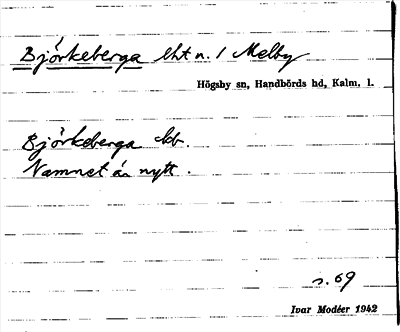 Björkeberga lht n. 1 Melby
Högsby sn, Handbörds hd, Kalm. l.
Björkeberga
Namnet är nytt.
s. 69
Ivar Modéer 1942